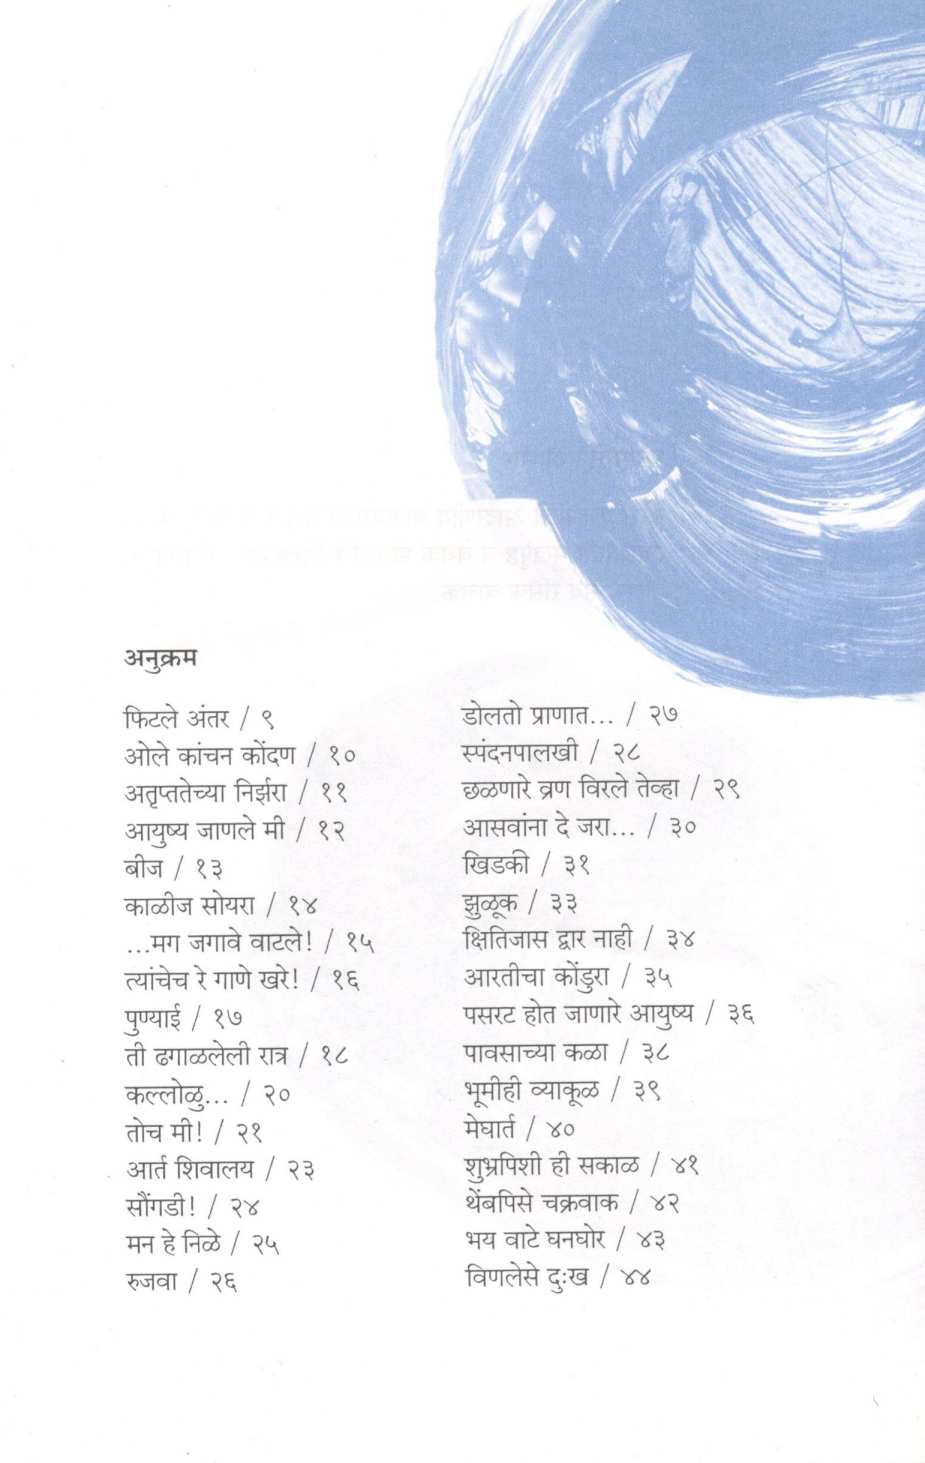 अनुक्रम
फिटले अंतर / ९
ओले कांचन कोंदण / १०
अतृप्ततेच्या निर्झरा / ११
आयुष्य जाणले मी / १२
बीज / १३
काळीज सोयरा / १४
...मग जगावे वाटले! / १५
त्यांचेच रे गाणे खरे! / १६
पुण्याई / १७
ती ढगाळलेली रात्र / १८
कल्लोळु... / २०
तोच मी! / २१
आर्त शिवालय / २३
सौंगडी! / २४
मन हे निळे / २५
रुजवा / २६
डोलतो प्राणात... / २७
स्पंदनपालखी / २८
छळणारे व्रण विरले तेव्हा / २९
आसवांना दे जरा... / ३०
खिडकी / ३१
झुळूक / ३३
क्षितिजास द्वार नाही / ३४
आरतीचा कोंडुरा / ३५
पसरट होत जाणारे आयुष्य / ३६
पावसाच्या कळा / ३८
भूमीही व्याकूळ / ३९
मेघार्त / ४०
शुभ्रपिशी ही सकाळ / ४१
थेंबपिसे चक्रवाक / ४२
भय वाटे घनघोर / ४३
विणलेसे दुःख / ४४